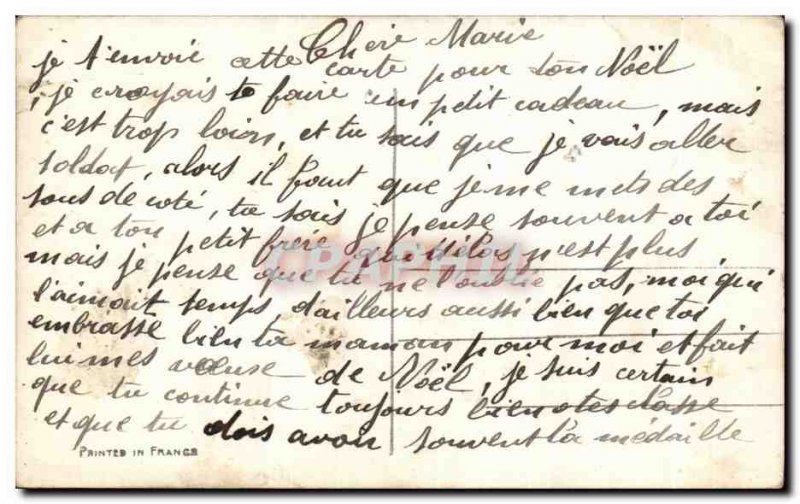 Chère Marie
je t'envoie cette carte pour ton Noël
; je croyais te faire un petit cadeau, mais
c'est trop loion, et tu sais que je vais aller
soldat, alors il faut que je me mets des
sous de coté, tu sais je pense souvent a toi
et a ton petit frère qui élos n'est plus
mais je pense que tu ne l'oublie pas, moi qui
l'aimait temps, d'ailleurs aussi bien que toi
embrasse bien ta maman pour moi et fait
lui mes vœuse de Noël, je suis certain
que tu continue toujours bien otes classe
et que tu dois avoir souvent la médaille
PRINTED IN FRANCE
CPAPHIL